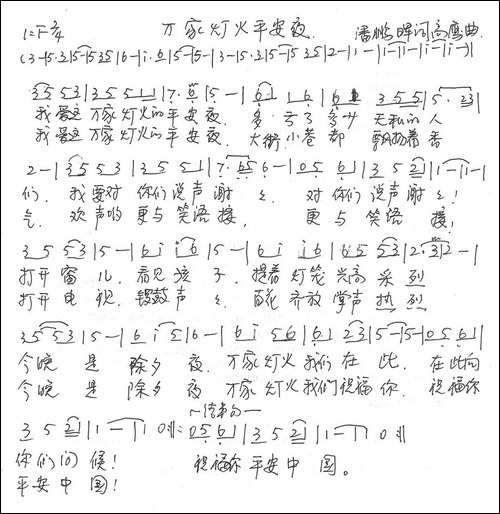 1=F 2/4 万家灯火平安夜. 潘鹏晖词 高鹰曲.
(3-|5·3|5-|5 35|6-|i·6|5-|5-|3-|5·3|5-|5 35|2-|1-|1-|1-|i-|i-)|
3 5 5 3|3 5 5|7·6|5-|6 1|1 6|6|3 5 5|5·23|
我爱这 万家 灯火的平安夜. 多 亏了 多少 无私的 人
我爱这 万家 灯火的平安夜. 大街小巷 都 飘扬着 香
2-|3 5 5 3|3 5 5|7·65|6-|0 5 6|3 5 2|1-|1-|
们. 我要对 你们 说声 谢 々. 对 你们 说声 谢 々!
气. 欢声哟 更与 笑语 接, 更 与 笑语 接!
3 5 5 3|5-|6 i i 6|5-|6 i i 6|6 5 5 3|2·3|2-|
打开 窗 儿. 看见 孩 子. 提着 灯笼 兴高 采 列
打开 电 视. 锣鼓 声 々. 百花 齐放 掌声 热 烈
3 5 5 3|5-|6 i 5|6-|6 i 5 6|6 1 2 3|5-|5-|0 5 6|
今晚 是 除夕 夜. 万家 灯火 我们 在 此. 在此向
今晚 是 除夕 夜 万家 灯火 我们祝福 你. 祝福你
~结束句~
3 5 2|1-|1 0:‖ 0 5 6|3 5 2|1-|1 0‖
你们 问 候! 祝福你 平安 中 国。
平安 中 国!